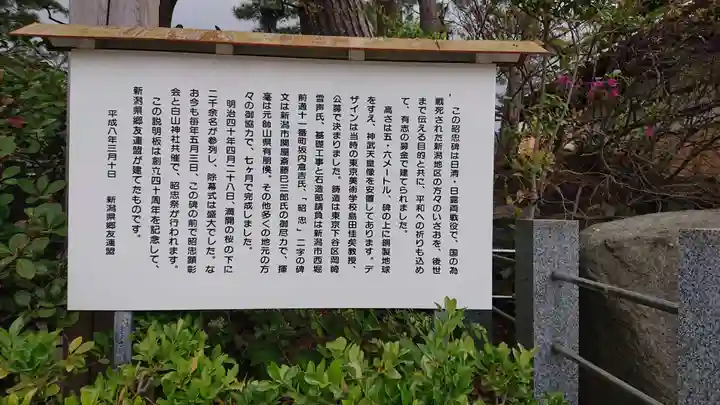 この昭忠碑は日清・日露両戦役で、国の為
戦死された新潟地区の方々のいさおを、後世
まで伝える目的と共に、平和への祈りも込め
て、有志の募金で建てられました。
高さは五・六メートル、碑の上に銅製地球
をすえ、神武天皇像を安置してあります。デ
ザインは当時の東京美術学校島田佳矣教授、
公募で決まりました。鋳造は東京下谷区岡崎
雪声氏、基礎工事と石造部請負は新潟市西堀
前通十一番町坂内倉吉氏、「昭忠」二字の碑
文は新潟市関屋斎藤巳三郎氏の御尽力で、揮
毫は元帥山県有朋候、その他多くの地元の方
々の御協力で、七ヶ月で完成しました。
明治四十年四月二十八日、満開の桜の下に
二千余名が参列し、除幕式は盛大でした。な
お今も毎年五月三日、この碑の前で昭忠顕彰
会と白山神社共催で、昭忠祭が行われます。
この説明板は創立四十周年を記念して、
新潟県郷友連盟が建てたものです。
平成八年三月十日 新潟県郷友連盟